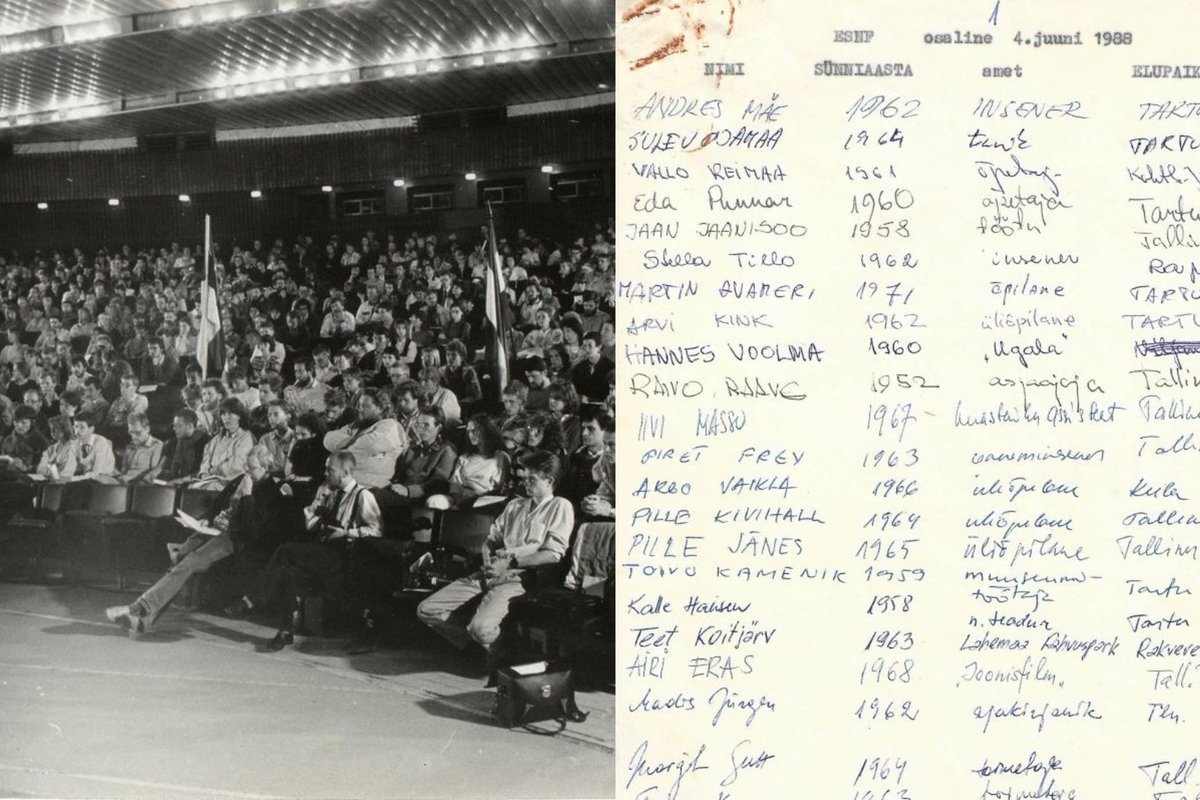 1
ESNF osaline 4.juuni 1988
NIMI SÜNNIAASTA amet ELUPAIK
ANDRES MÄE 1962 INSENER TARTU
SULEV OJAMAA 1964 TARTU
VALLO REIMAA 1961 õpetaj-
Eda 1960 õpetaja Tartu
JAAN JAANISOO 1958 töötu Tallin
Stella Tillo 1962 insener
MARTIN AVAMERI 1971 õpilane TARTU
ARVI KINK 1962 üliõpilane TARTU
HANNES VOOLMA 1960 „Ugala"
RAVO RAAVE 1952 asjaajaja Tallin
IIVI MASSO 1967 Tallin
PIRET FREY 1963 vaneminsener Tall
ARGO VAIKLA 1966 üliõpilane Keila
PILLE KIVIHALL 1964 üliõpilane Tallin
PILLE JÄNES 1965 üliõpilane Tallinn
TOIVO KAMENIK 1959 muuseumi-
töötaja Tartu
Kalle Hansen 1958 n. teadur Tartu
Teet Koitjärv 1963 Lahemaa Rahvuspark Rakvere
AIRI ERAS 1968 „Joonisfilm„ Tall.
Madis Jürgen 1962 ajakirjanik Tln.
Margit 1964 toimetaja Tall.
toimetaja